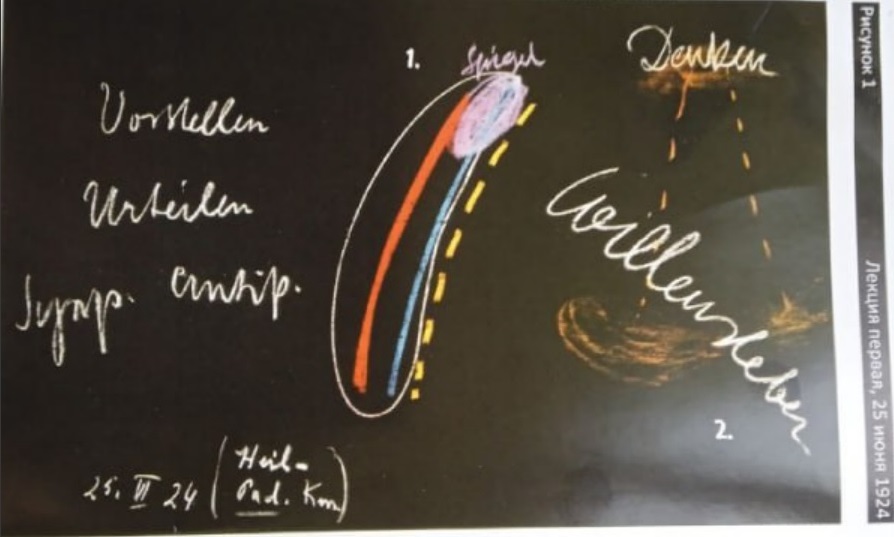 Vorstellen
Urteilen
Symp. Antip.
25. VI 24 (Heil-
Päd. Kurs)
1.
Spiegel
Denken
Willensleben
2.
Рисунок 1
Лекция первая, 25 июня 1924